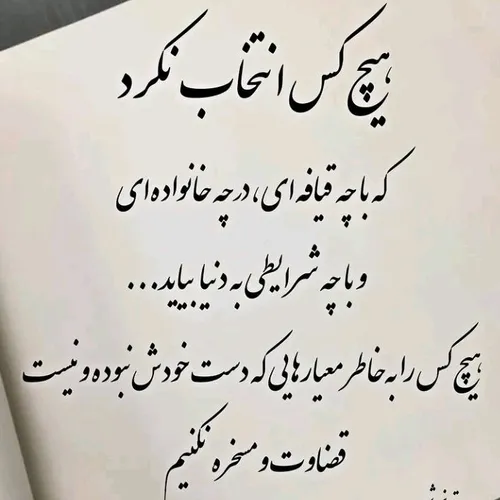 هیچ کس انتخاب نکرد
که با چه قیافه ای، در چه خانواده ای
و با چه شرایطی به دنیا بیاید...
هیچ کس را به خاطر معیارهایی که دست خودش نبوده و نیست
قضاوت و مسخره نکنیم